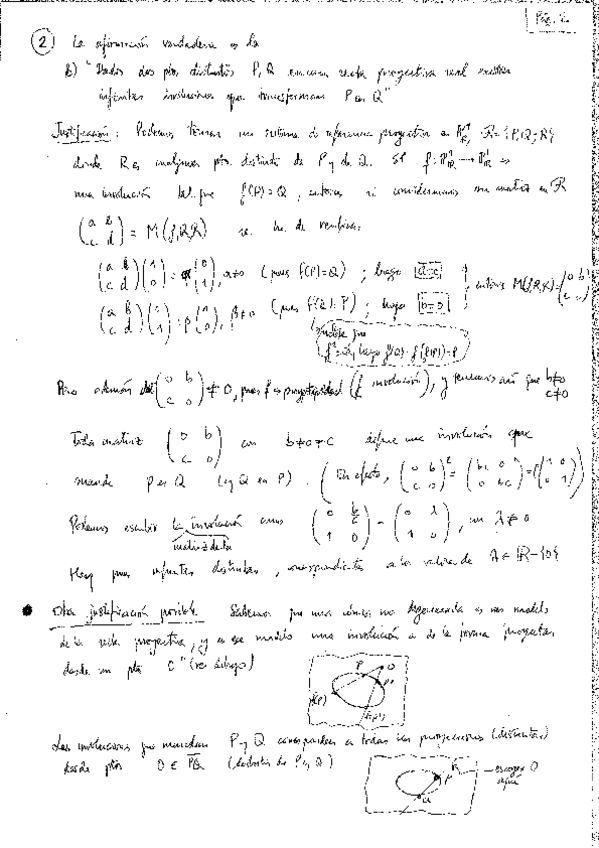 Pág. 2
(2) La afirmación verdadera es la
b) "Dados dos ptos. distintos P, Q en una recta proyectiva real existen
infinitas involuciones que transforman P en Q"
Justificación: Podemos tomar un sistema de referencia proyectivo en P¹_R, R = {P,Q;R}
donde R es cualquier pto. distinto de P y de Q. Si f: P¹_R → P¹_R es
una involución tal que f(P)=Q, entonces si consideramos su matriz en R
(a b; c d) = M(f,R,R) se ha de verificar:
(a b; c d)(1; 0) = α(0; 1), α≠0 (pues f(P)=Q); luego a=0
(a b; c d)(0; 1) = β(1; 0), β≠0 (pues f(Q)=P); luego
entonces M(f,R,R)=(0 b; c 0)
Pero además det(0 b; c 0) ≠ 0, pues f es proyectividad (f involución), y tenemos así que b≠0
c≠0
Toda matriz (0 b; c 0) con b≠0≠c define una involución que
mande P en Q (y Q en P). (En efecto, (0 b; c 0)² = (bc 0; 0 bc) = ρ(1 0; 0 1))
Podemos escribir la involución como (0 b/c; 1 0) = (0 λ; 1 0), con λ≠0
matriz de la
Hay pues infinitas distintas, correspondientes a los valores de λ ∈ R-{0}
Otra justificación posible Sabemos que una cónica no degenerada es un modelo
de la recta proyectiva, y en ese modelo una involución es de la forma "proyectar
desde un pto O" (ver dibujo)
P O
P'
f(P)
f(P')
Las involuciones que mandan P y Q corresponden a todas las proyecciones (distintas)
desde ptos O ∈ PQ (distintos de P y Q)
P
Q
escoger O
aquí